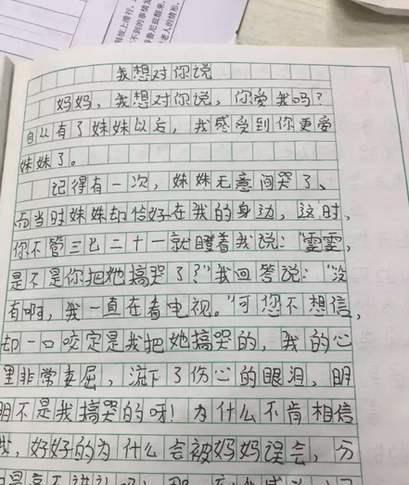 我想对你说
妈妈，我想对你说，你爱我吗？
自从有了妹妹以后，我感受到你更爱
妹妹了。
记得有一次，妹妹无意间哭了，
而当时妹妹却恰好在我的身边，这时，
你不管三七二十一就瞪着我说：“雯雯，
是不是你把她搞哭了？”我回答说：“没
有啊，我一直在看电视。”可您不想信，
却一口咬定是我把她搞哭的，我的心
里非常委屈，流下了伤心的眼泪，明
明不是我搞哭的呀！为什么不肯相信
我，好好的为什么会被妈妈误会，分